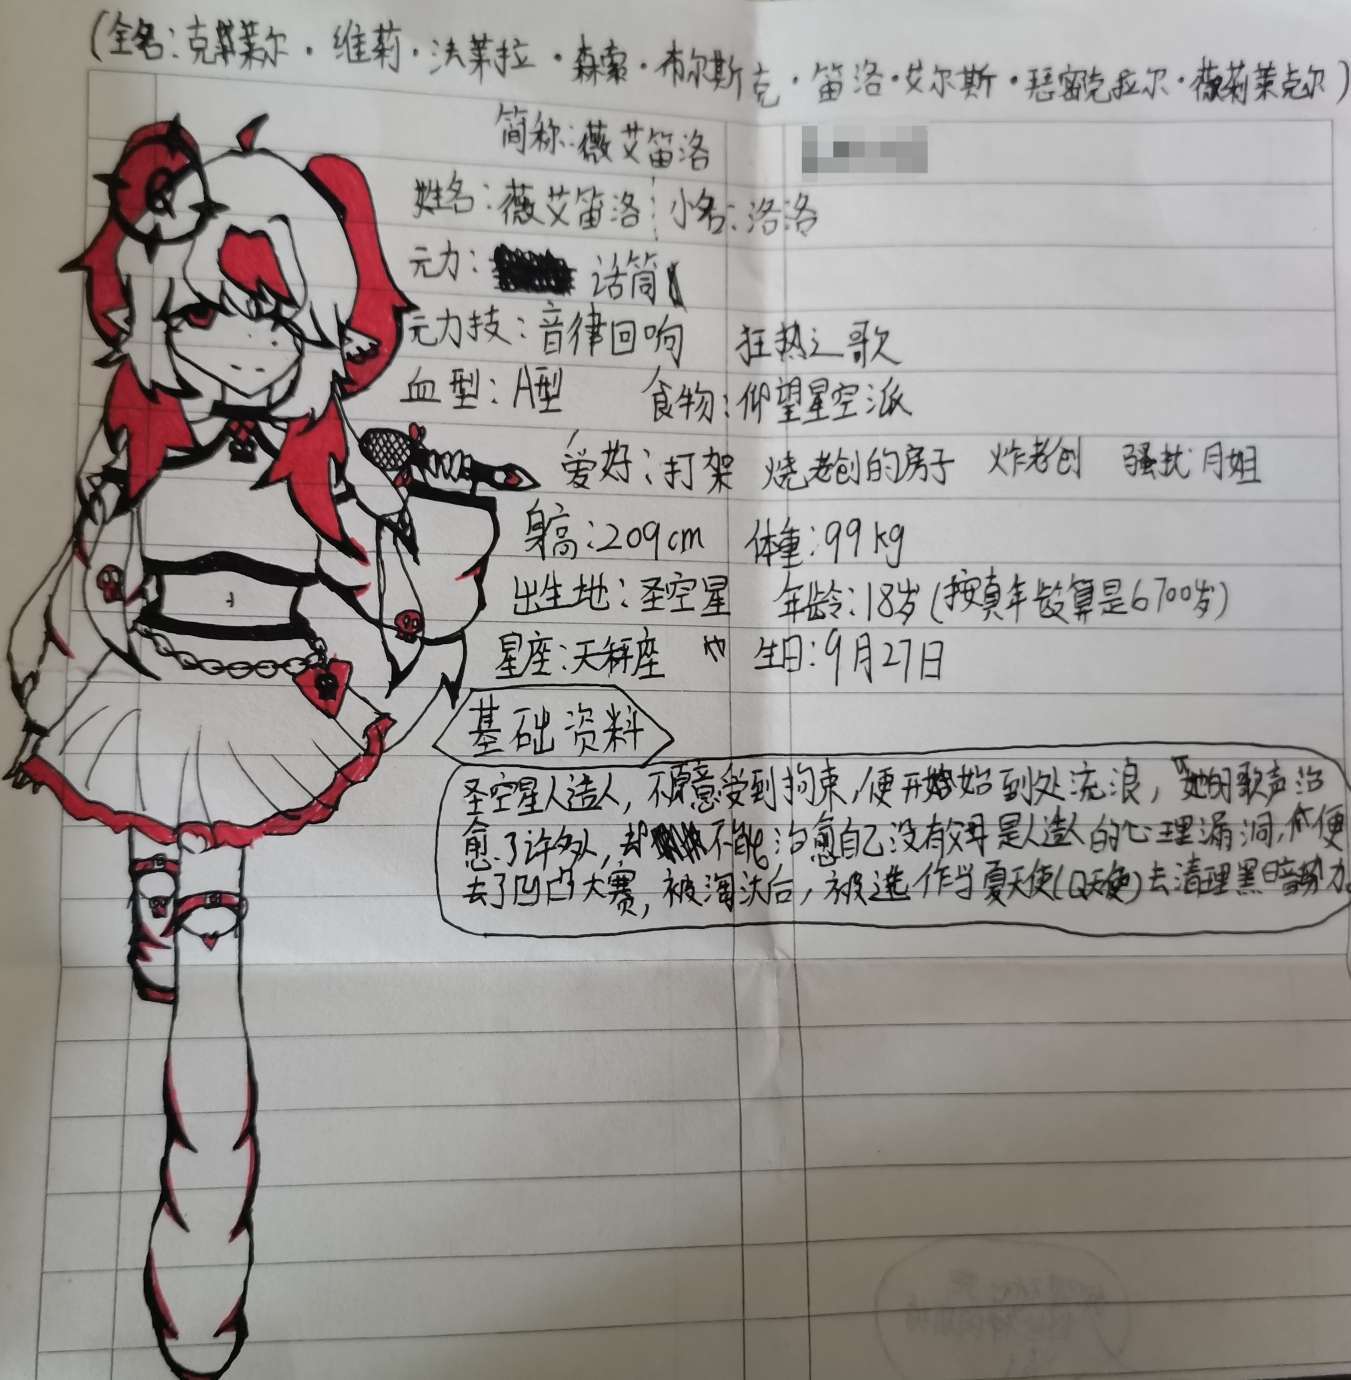 (全名:克莱尔·维莉·法莱拉·森索·布尔斯克·笛洛·艾尔斯·琵密克拉尔·薇莉莱克尔)
简称:薇艾笛洛
姓名:薇艾笛洛 小名:洛洛
元力: 话筒
元力技:音律回响 狂热之歌
血型:A型 食物:仰望星空派
爱好:打架 烧老创的房子 炸老创 骚扰月姐
身高:209cm 体重:99kg
出生地:圣空星 年龄:18岁(按真年龄算是6700岁)
星座:天秤座 生日:9月27日
基础资料
圣空星人造人,不愿意受到拘束,便开始到处流浪,她的歌声治
愈了许多人,却不能治愈自己没有父母是人造人的心理漏洞,便
去了凹凸大赛,被淘汰后,被选作当夏天使(Q天使)去清理黑暗势力。